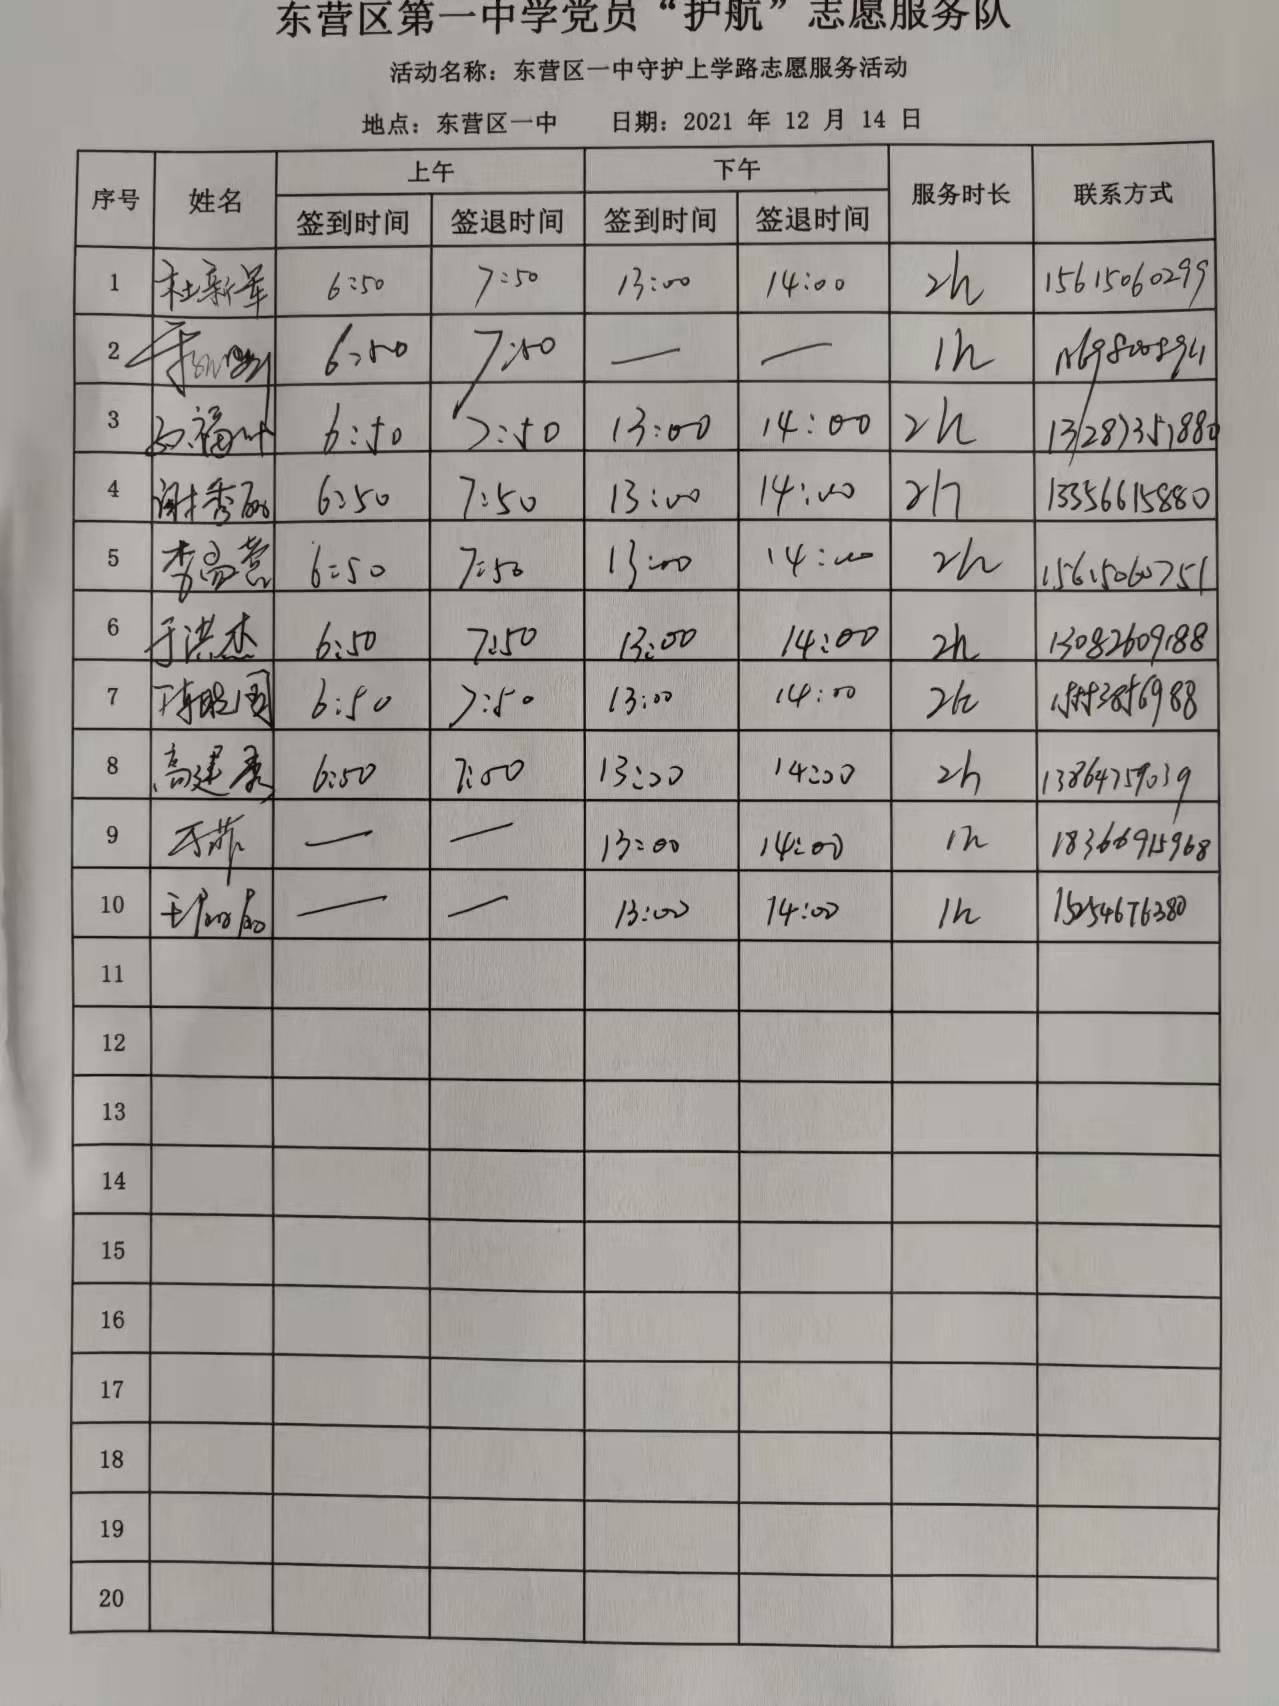 东营区第一中学党员“护航”志愿服务队
活动名称：东营区一中守护上学路志愿服务活动
地点：东营区一中 日期：2021 年 12 月 14 日
序号 姓名 上午 下午 服务时长 联系方式
签到时间 签退时间 签到时间 签退时间
1 杜新军 6:50 7:50 13:00 14:00 2h 15615060299
2 6:50 7:50 — — 1h
3 6:50 7:50 13:00 14:00 2h
4 谢秀丽 6:50 7:50 13:00 14:00 2h 13356615880
5 李高营 6:50 7:50 13:00 14:00 2h 15615060751
6 于洪杰 6:50 7:50 13:00 14:00 2h 13082609188
7 6:50 7:50 13:00 14:00 2h 15553856988
8 高建秀 6:50 7:50 13:00 14:00 2h 13864759039
9 于菲 — — 13:00 14:00 1h 18366915968
10 — — 13:00 14:00 1h 15254676380
11
12
13
14
15
16
17
18
19
20